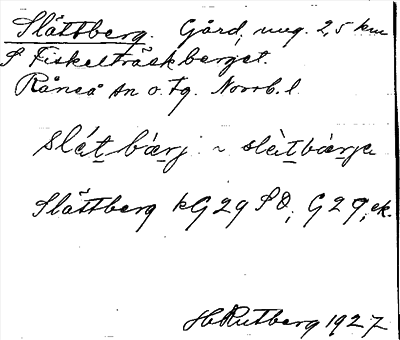 Slåttberg. Gård, ung. 2,5 km
S Fiskelträskberget.
Råneå sn o. tg. Norrb. l.
slát bærj ~ slàtbærje
Slåttberg kG29SO, G29, ek.
H Rutberg 1927